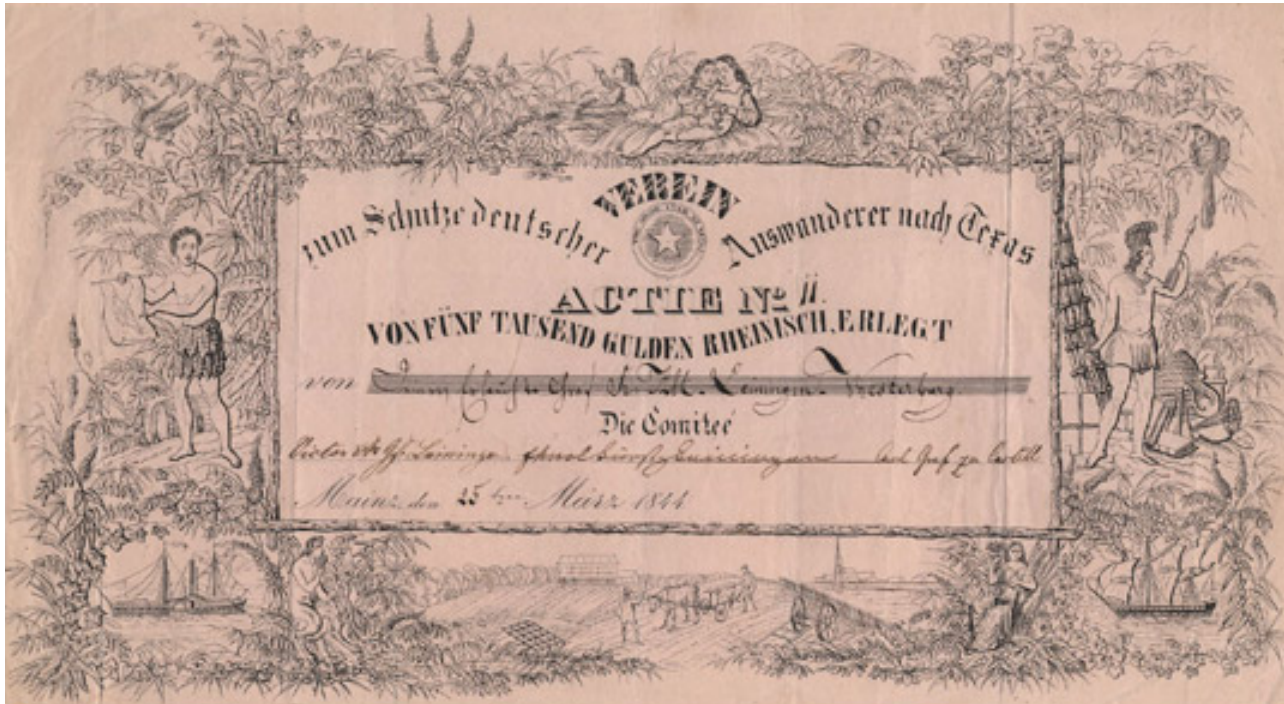 VEREIN
zum Schutze deutscher Auswanderer nach Texas
ACTIE No. 11.
VON FÜNF TAUSEND GULDEN RHEINISCH, ERLEGT
von Graf Leiningen-Westerburg
Die Comiteé
Leiningen Fürst Leiningen Carl Graf zu Castell
Mainz den 25ten März 1844